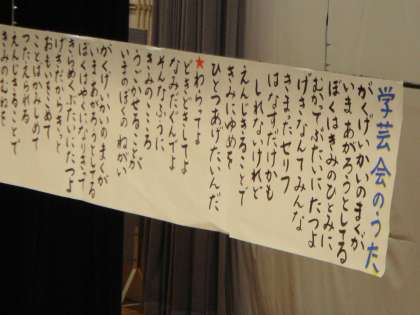 学芸会のうた
がくげいかいのまくが
いまあがろうとしてる
ぼくはきみのひとみに
むかってぶたいにたつよ
げきなんてみんな
きまったセリフ
はなすだけかも
しれないけれど
えんじきることで
きみにゆめを
ひとつあげたいんだ
★わらってよ
どきどきしてよ
なみだぐんでよ
そんなふうに
きみのこころ
うごかせることが
いまのぼくのねがい
がくげいかいのまくが
いまあがろうとしてる
ぼくはやくになりきって
きらめくぶたいにたつよ
げきだからきっと
おもいきこめて
ことばかみしめて
つたえられる
えんじきることで
きみのむねを